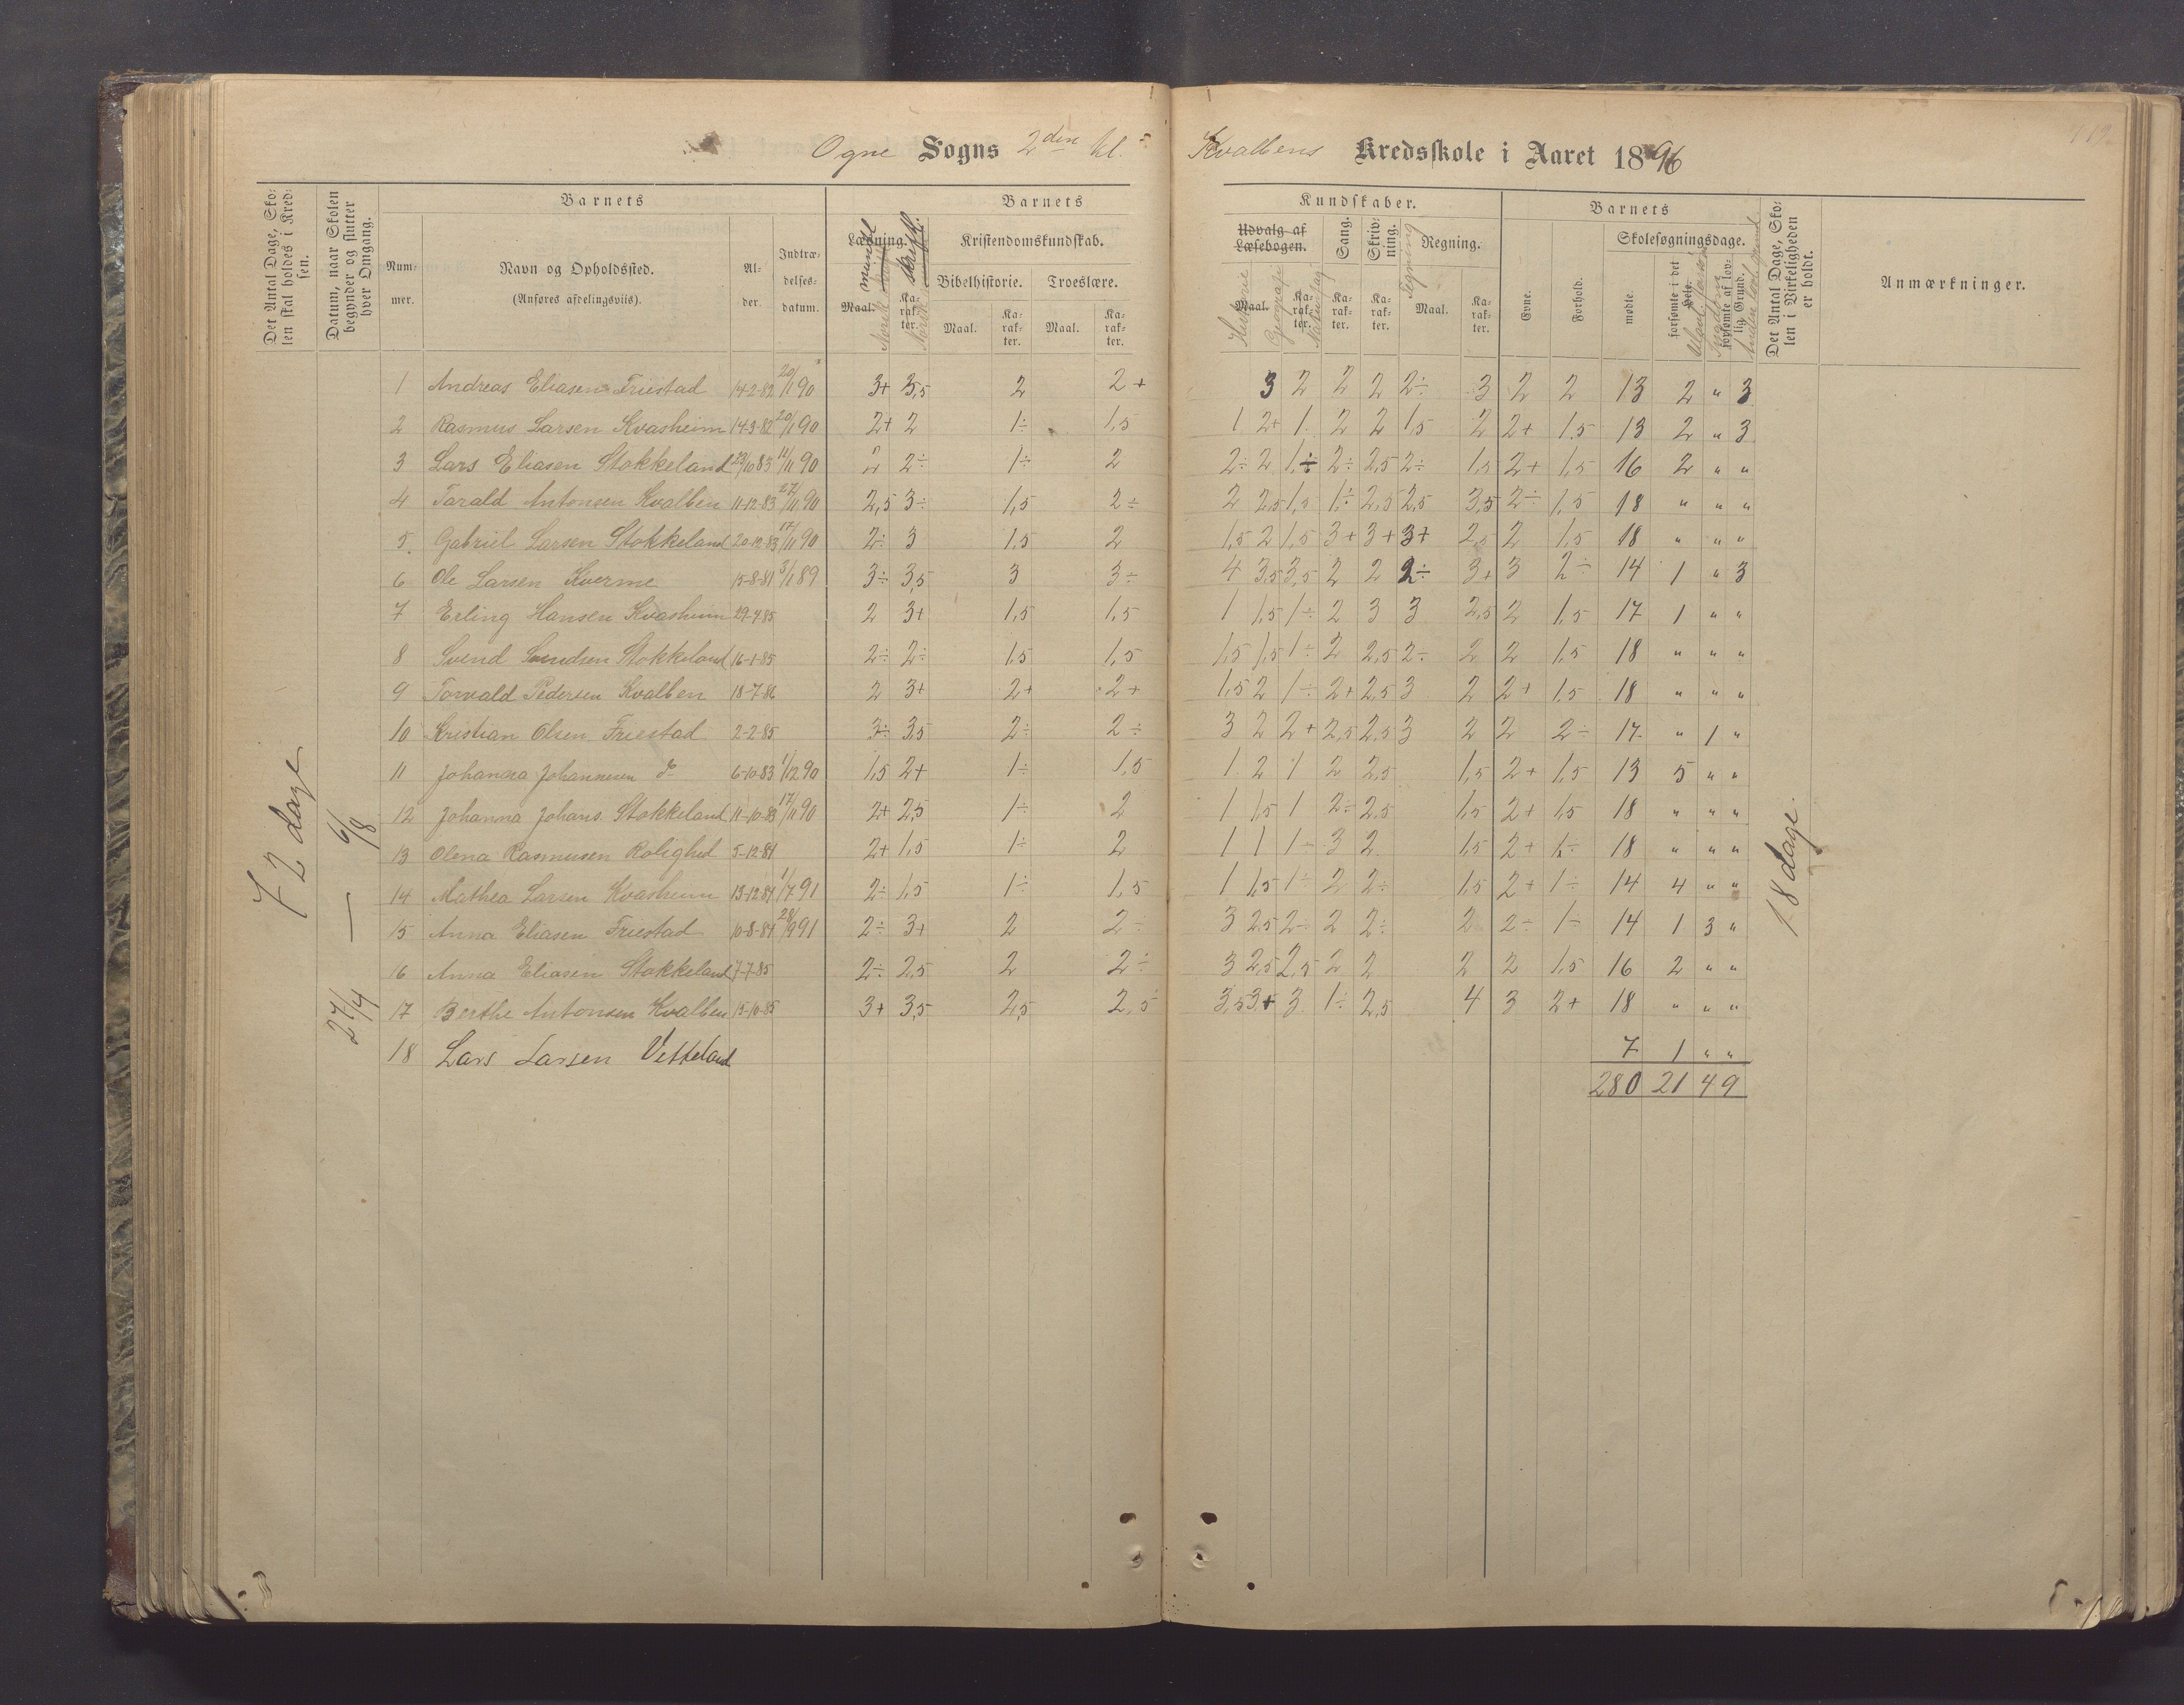 Ogne Sogns 2den kl. Kvalbens Kredsskole i Aaret 1896
Det Antal Dage, Skolen skal holdes i Kredsen.
Datum, naar Skolen begynder og slutter hver Omgang.
Barnets
Nummer.
Navn og Opholdssted.
(Anføres afdelingsviis).
Alder.
Indtrædelsesdatum.
Barnets Kundskaber.
Læsning. mundtl skriftl.
Maal. Karakter.
Kristendomskundskab.
Bibelhistorie. Troeslære.
Maal. Karakter. Maal. Karakter.
Udvalg af Læsebogen.
Maal. Karakter.
Historie Geografi Naturfag
Sang. Karakter.
Skrivning. Karakter.
Tegning
Regning.
Maal. Karakter.
Barnets
Evne. Forhold.
Skolesøgningsdage.
mødte. forsømte i det Hele. forsømte af lovlig Grund.
Sygdom
Det Antal Dage, Skolen i Virkeligheden er holdt.
Anmærkninger.
72 dage
27/4 — 6/8
18 dage.
1 Andreas Eliasen Friestad 14-2-82 20/11 90 3+ 3,5 2 2+ 3 2 2 2 2÷ 3 2 2 13 2 " 3
2 Rasmus Larsen Kvasheim 14-3-82 20/11 90 2+ 2 1÷ 1,5 1 2+ 1 2 2 1,5 2 2+ 1,5 13 2 " 3
3 Lars Eliasen Stokkeland 23/10 83 11/11 90 2 2÷ 1÷ 2 2÷ 2 1,÷ 2÷ 2,5 2÷ 1,5 2+ 1,5 16 2 " "
4 Tarald Antonsen Kvalben 11-12-83 27/11 90 2,5 3÷ 1,5 2÷ 2 2,5 1,5 1÷ 2,5 2,5 3,5 2÷ 1,5 18 " " "
5 Gabriel Larsen Stokkeland 20-12-83 17/11 90 2÷ 3 1,5 2 1,5 2 1,5 3+ 3+ 3+ 2,5 2 1,5 18 " " "
6 Ole Larsen Kverme 15-8-81 3/1 89 3÷ 3,5 3 3÷ 4 3,5 3,5 2 2 2÷ 3+ 3 2÷ 14 1 " 3
7 Erling Hansen Kvasheim 29-4-85 2 3+ 1,5 1,5 1 1,5 1÷ 2 3 3 2,5 2 1,5 17 1 " "
8 Svend Svendsen Stokkeland 16-1-85 2÷ 2÷ 1,5 1,5 1,5 1,5 1÷ 2 2,5 2÷ 2 2 1,5 18 " " "
9 Torvald Pedersen Kvalben 18-7-86 2 3+ 2+ 2+ 1,5 2 1÷ 2+ 2,5 3 2 2+ 1,5 18 " " "
10 Kristian Olsen Friestad 2-2-85 3÷ 3,5 2÷ 2÷ 3 2 2+ 2,5 2,5 3 2 2 2÷ 17 " 1 "
11 Johanna Johannesen do 6-10-83 1/12 90 1,5 2+ 1÷ 1,5 1 2 1 2 2,5 1,5 2+ 1,5 13 5 " "
12 Johanna Johans. Stokkeland 11-10-83 17/11 90 2+ 2,5 1÷ 2 1 1,5 1 2÷ 2,5 1,5 2+ 1,5 18 " " "
13 Olena Rasmusen Rolighed 5-12-84 2+ 1,5 1÷ 2 1 1 1÷ 3 2 1,5 2+ 1÷ 18 " " "
14 Mathea Larsen Kvasheim 13-12-84 1/7 91 2÷ 1,5 1÷ 1,5 1 1,5 1÷ 2 2÷ 1,5 2+ 1÷ 14 4 " "
15 Anna Eliasen Friestad 10-8-84 28/9 91 2÷ 3+ 2 2÷ 3 2,5 2÷ 2 2÷ 2 2÷ 1÷ 14 1 3 "
16 Anna Eliasen Stokkeland 7-7-85 2÷ 2,5 2 2÷ 3 2,5 2,5 2 2 2 2 1,5 16 2 " "
17 Berthe Antonsen Kvalben 15-10-85 3+ 3,5 2,5 2,5 3,5 3+ 3 1÷ 2,5 4 3 2+ 18 " " "
18 Lars Larsen Vetteland 7 1 " "
280 21 4 9